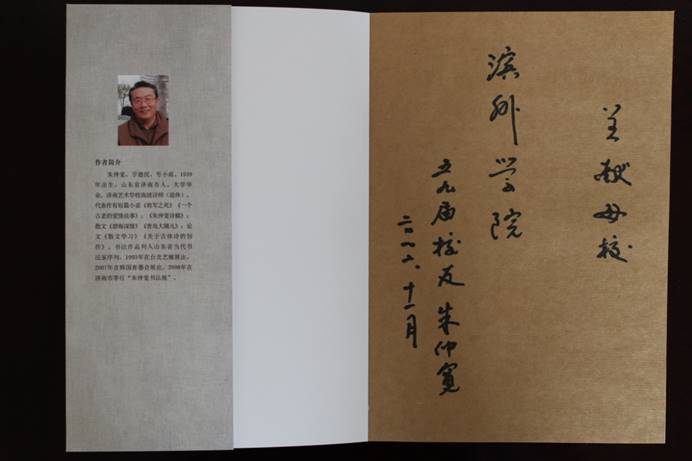 作者简介
朱仲宽，字德民，号小甫，1939
年出生，山东省济南市人。大学毕
业。济南艺术学校高级讲师（退休）。
代表作有短篇小说《将军之死》《一个
古老的爱情故事》、《朱仲宽诗稿》；
散文《渤海深情》；论
文《散文学习》《关于古体诗的创
作》。书法作品列入山东省当代书
法家序列。1995年在台北艺廊展出，
2007年在韩国展出，2008年在
济南市举行“朱仲宽书法展”。
呈献母校
滨州学院
五九届校友 朱仲宽
十一月